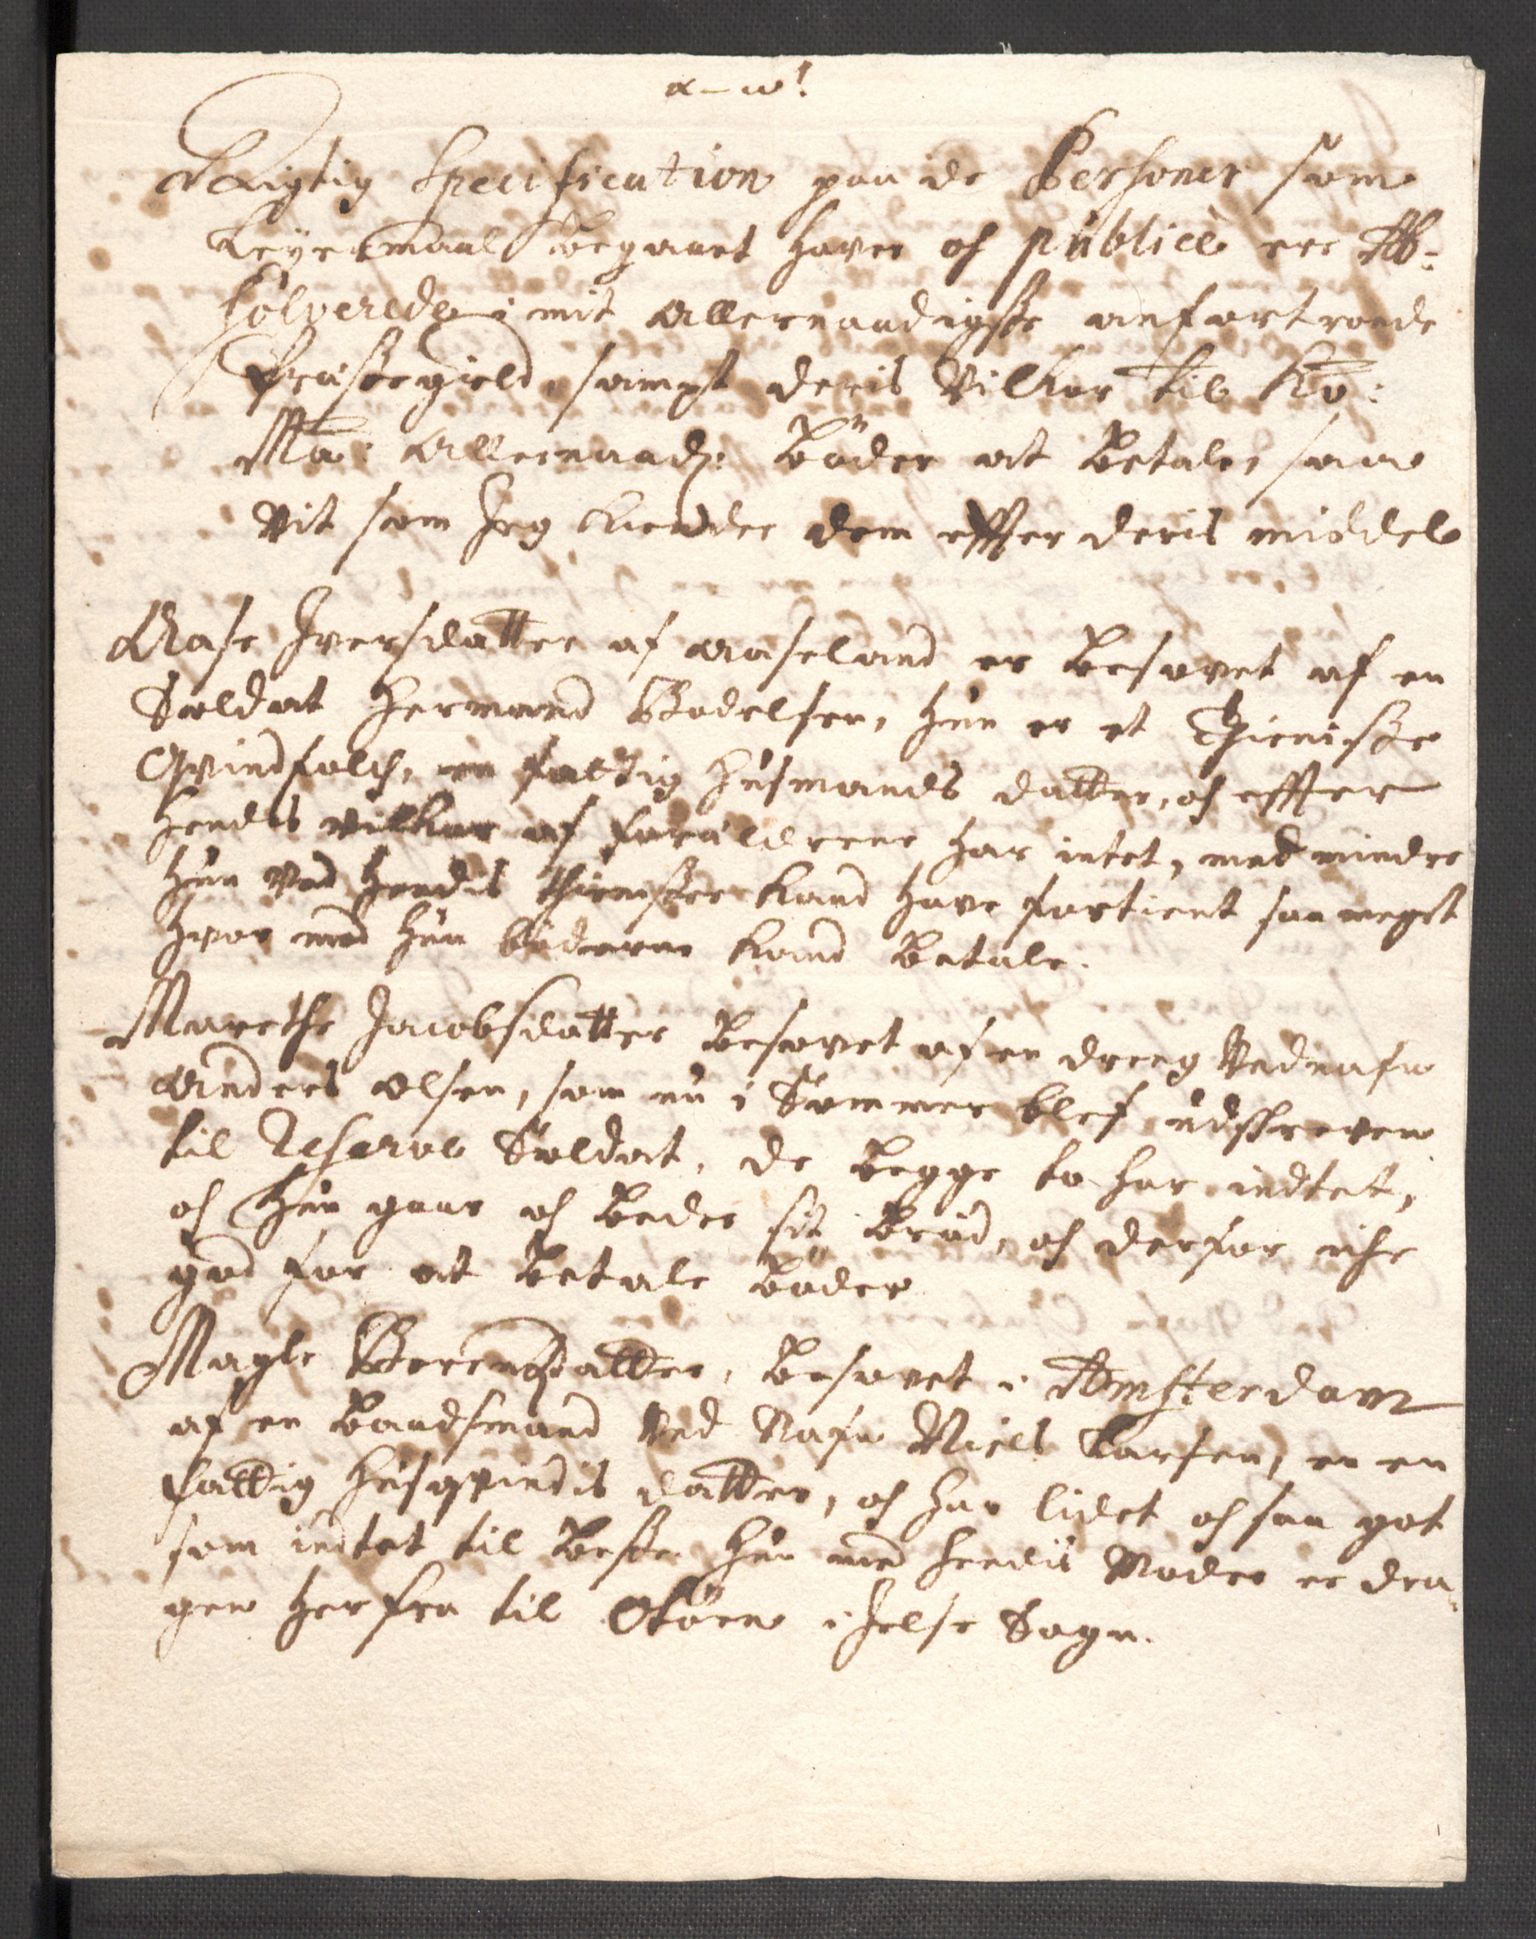 α–ω!
Rigtig Specification paa de Personer som
Leyermaal begaaet haver och publicè ere Ab-
solverede i mit allernaadigste anfortroede
Præstegield, sampt deris Vilkor til Ko:
Ma: allernaad: Böder at betale, saa
vit som Jeg kiender dem effter deris middel
Aase Iversdatter af Aaseland er besovet af en
Soldat Hermand Bodelsen, hun er et thieniste
Qvindfolch, en fattig Husmands datter, och effter
hendis vilkor af forældrene har intet, med mindre
hun ved hendis thieniste kand have fortient saa meget
hvor med hun böderne kand betale.
Marethe Jacobsdatter besovet af en dreng Ved nafn
Anders Olsen, som nu i Sommer blef udskreven
til Reserve Soldat, de begge to har indtet,
och hun gaar och beder sit bröd, och derfor iche
god for at betale böder
Magle Berentsdatter, besovet i Amsterdam
af en Baadsmand Ved Nafn Niels Larsen, er en
fattig husqvindis datter, och har lidet och saa got
som indtet til beste hun med hendis Moder er dra-
gen herfra til Öen i Jelse Sogn.